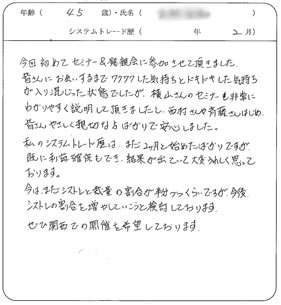 年齢（ 45 歳）・氏名（
システムトレード歴（ 年 2 月）
今回初めてセミナー&発親会に参加させて頂きました。
皆さんにお会いするまでワクワクした気持ちとドキドキした気持ち
が入り混じった状態でしたが、横山さんのセミナーも非常に
わかりやすく説明して頂きましたし、西村さんや斉藤さんはじめ、
皆さんやさしく親切な方ばかりで安心しました。
私のシステムトレード歴は、まだ2ヶ月と始めたばかりですが
既に利益確保もでき、結果が出ていて大変うれしく思って
おります。
今は、まだシストレと裁量の割合が半分つくらいですが今後、
シストレの割合を増やしていこうと検討しております。
ぜひ関西での開催を希望しております。